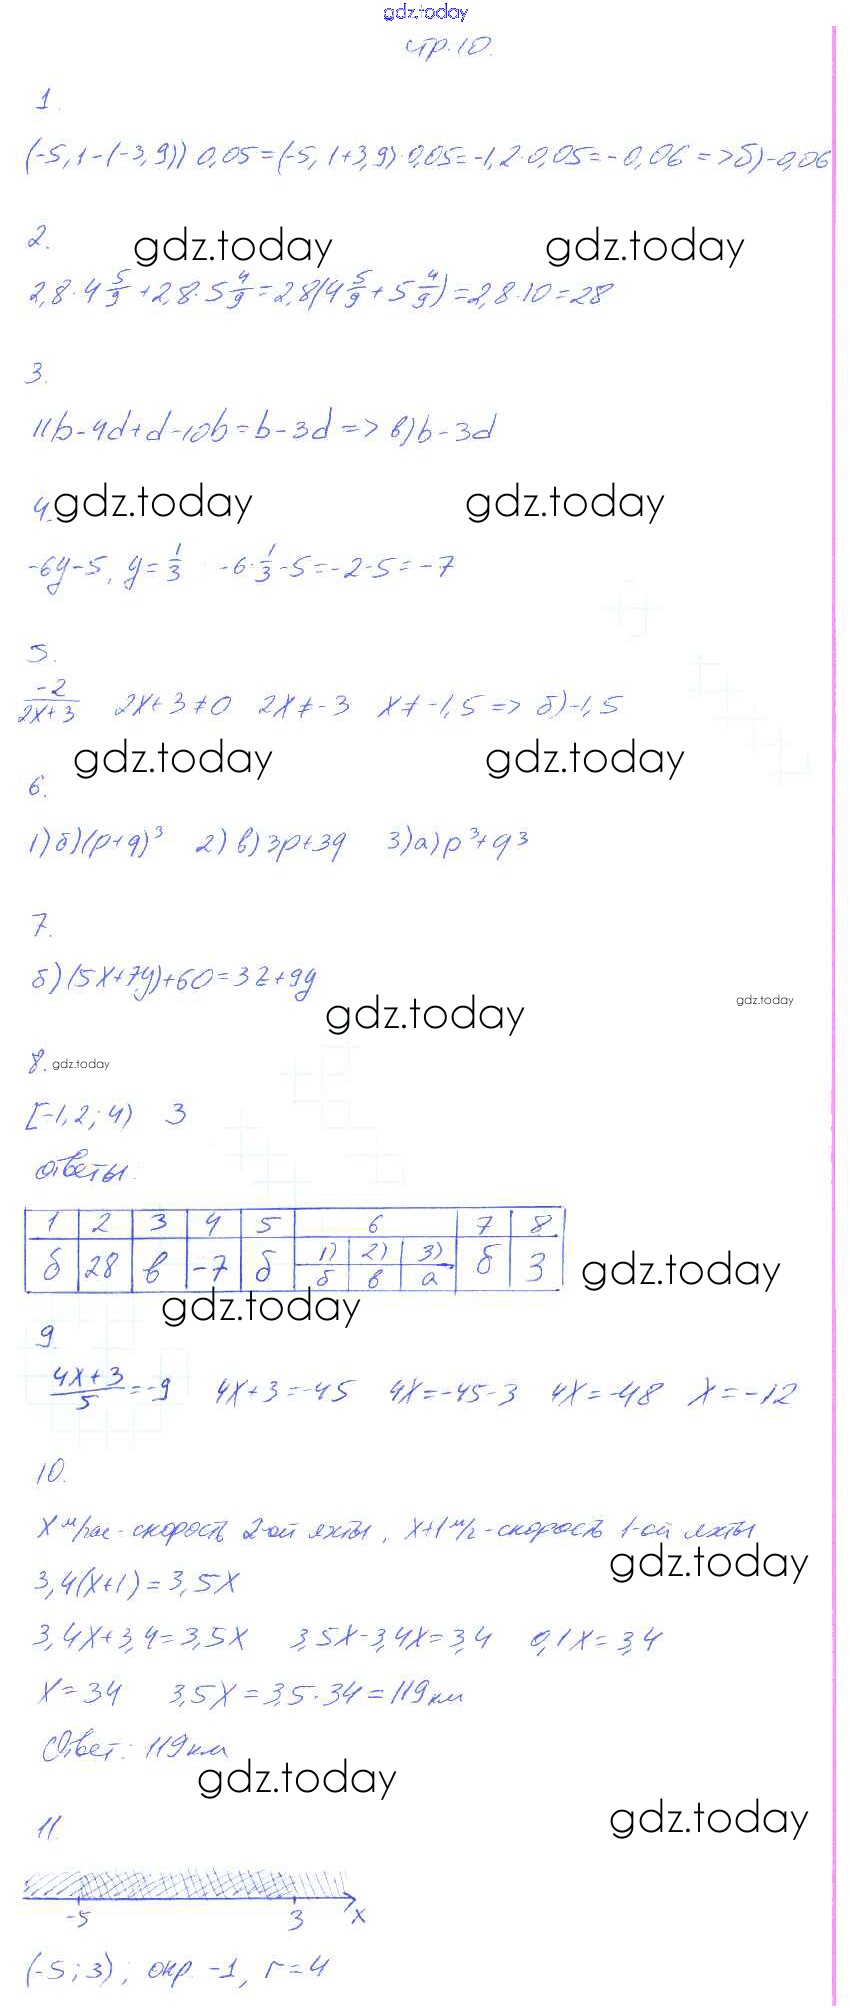 gdz.today
стр. 10.
1.
(-5,1-(-3,9))·0,05=(-5,1+3,9)·0,05=-1,2·0,05=-0,06 => б)-0,06
2.
gdz.today gdz.today
2,8·4 5/9 + 2,8·5 4/9 = 2,8(4 5/9 + 5 4/9) = 2,8·10=28
3.
11b-4d+d-10b=b-3d => в) b-3d
4. gdz.today gdz.today
-6y-5, y=1/3 -6·1/3-5=-2-5=-7
5.
-2/(2x+3) 2x+3≠0 2x≠-3 x≠-1,5 => б)-1,5
gdz.today gdz.today
6.
1) б) (p+q)³ 2) в) 3p+3q 3) а) p³+q³
7.
б) (5x+7y)+60=3z+9y
gdz.today gdz.today
8. gdz.today
[-1,2; 4) 3
ответы.
1 2 3 4 5 6 7 8
б 28 в -7 б 1) 2) 3) б 3
б в а
gdz.today
gdz.today
9.
(4x+3)/5=-9 4x+3=-45 4x=-45-3 4x=-48 x=-12
10.
x м/час - скорость 2-ой яхты, x+1 м/г - скорость 1-ой яхты
gdz.today
3,4(x+1)=3,5x
3,4x+3,4=3,5x 3,5x-3,4x=3,4 0,1x=3,4
x=34 3,5x=3,5·34=119 км
Ответ: 119 км
gdz.today
gdz.today
11.
-5 3 x
(-5; 3); окр. -1, r=4